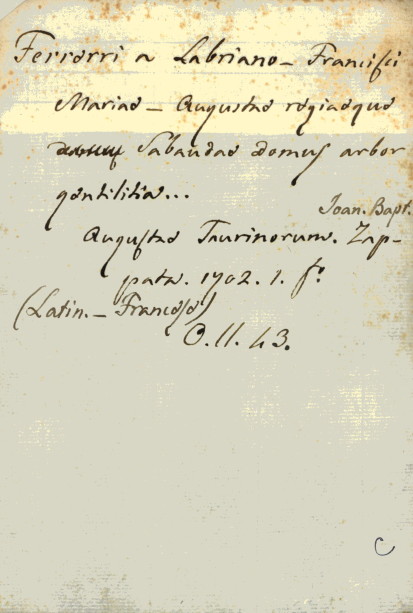 Ferreri a Labriano - Francisci
Mariae - Augustae regiaeque
Sabaudae domus arbor
gentilitia...
Joan. Bapt.
Augustae Taurinorum. Zap-
pata. 1702. 1. fº
(Latin. - Francese)
O. II. 43.
C